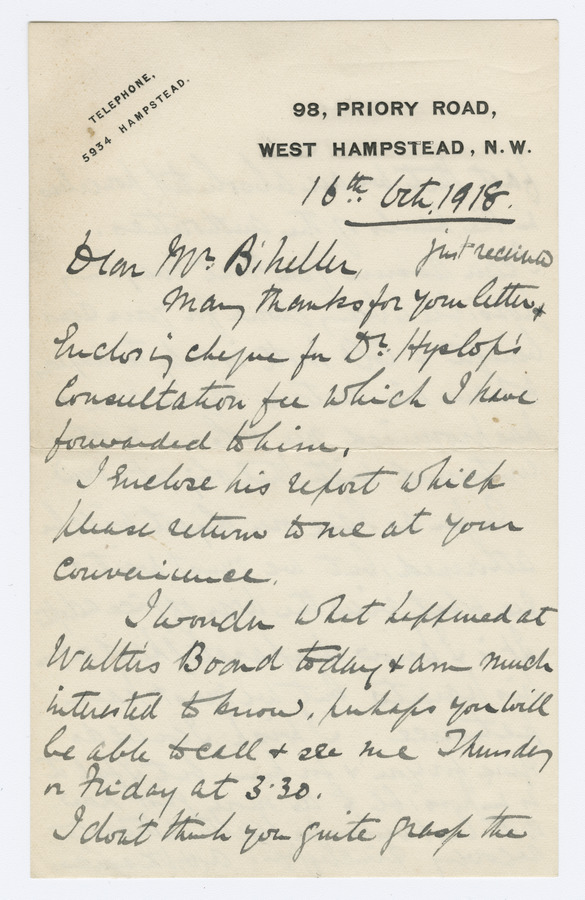 TELEPHONE,
5934 HAMPSTEAD.
98, PRIORY ROAD,
WEST HAMPSTEAD, N.W.
16th Oct, 1918.
Dear Mr. Biheller,
just received
Many thanks for your letter &
Enclosing cheque for Dr. Hyslop's
Consultation fee which I have
forwarded to him.
I Enclose his report which
please return to me at your
convenience.
I wonder what happened at
Walter's Board today & am much
interested to know, perhaps you will
be able to call & see me Thursday
or Friday at 3.30.
I don't think you quite grasp the